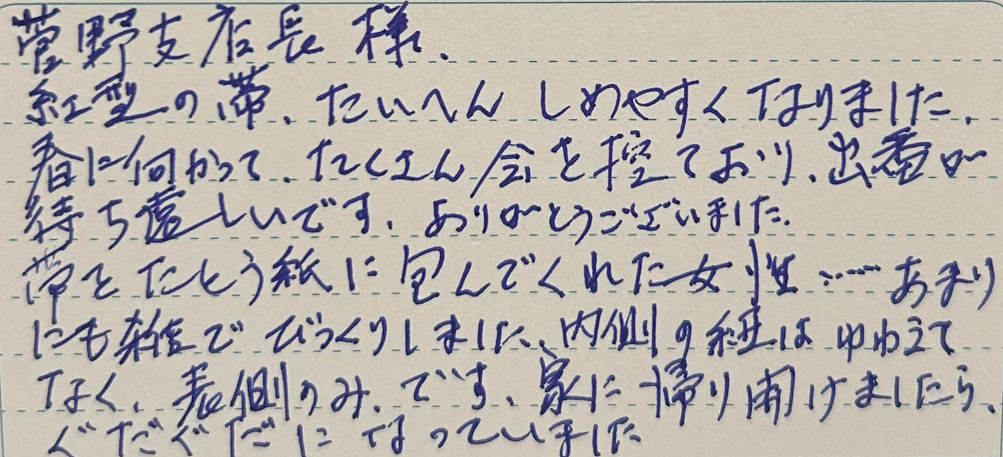 菅野支店長 様.
紅型の帯、たいへん しめやすくなりました.
春に向かって、たくさん会を控ており、出番が
待ち遠しいです. ありがとうございました.
帯をたとう紙に包んでくれた女性……あまり
にも雑でびっくりしました、内側の紐はゆわえて
なく、表側のみ、です、家に帰り開けましたら、
ぐだぐだになっていました